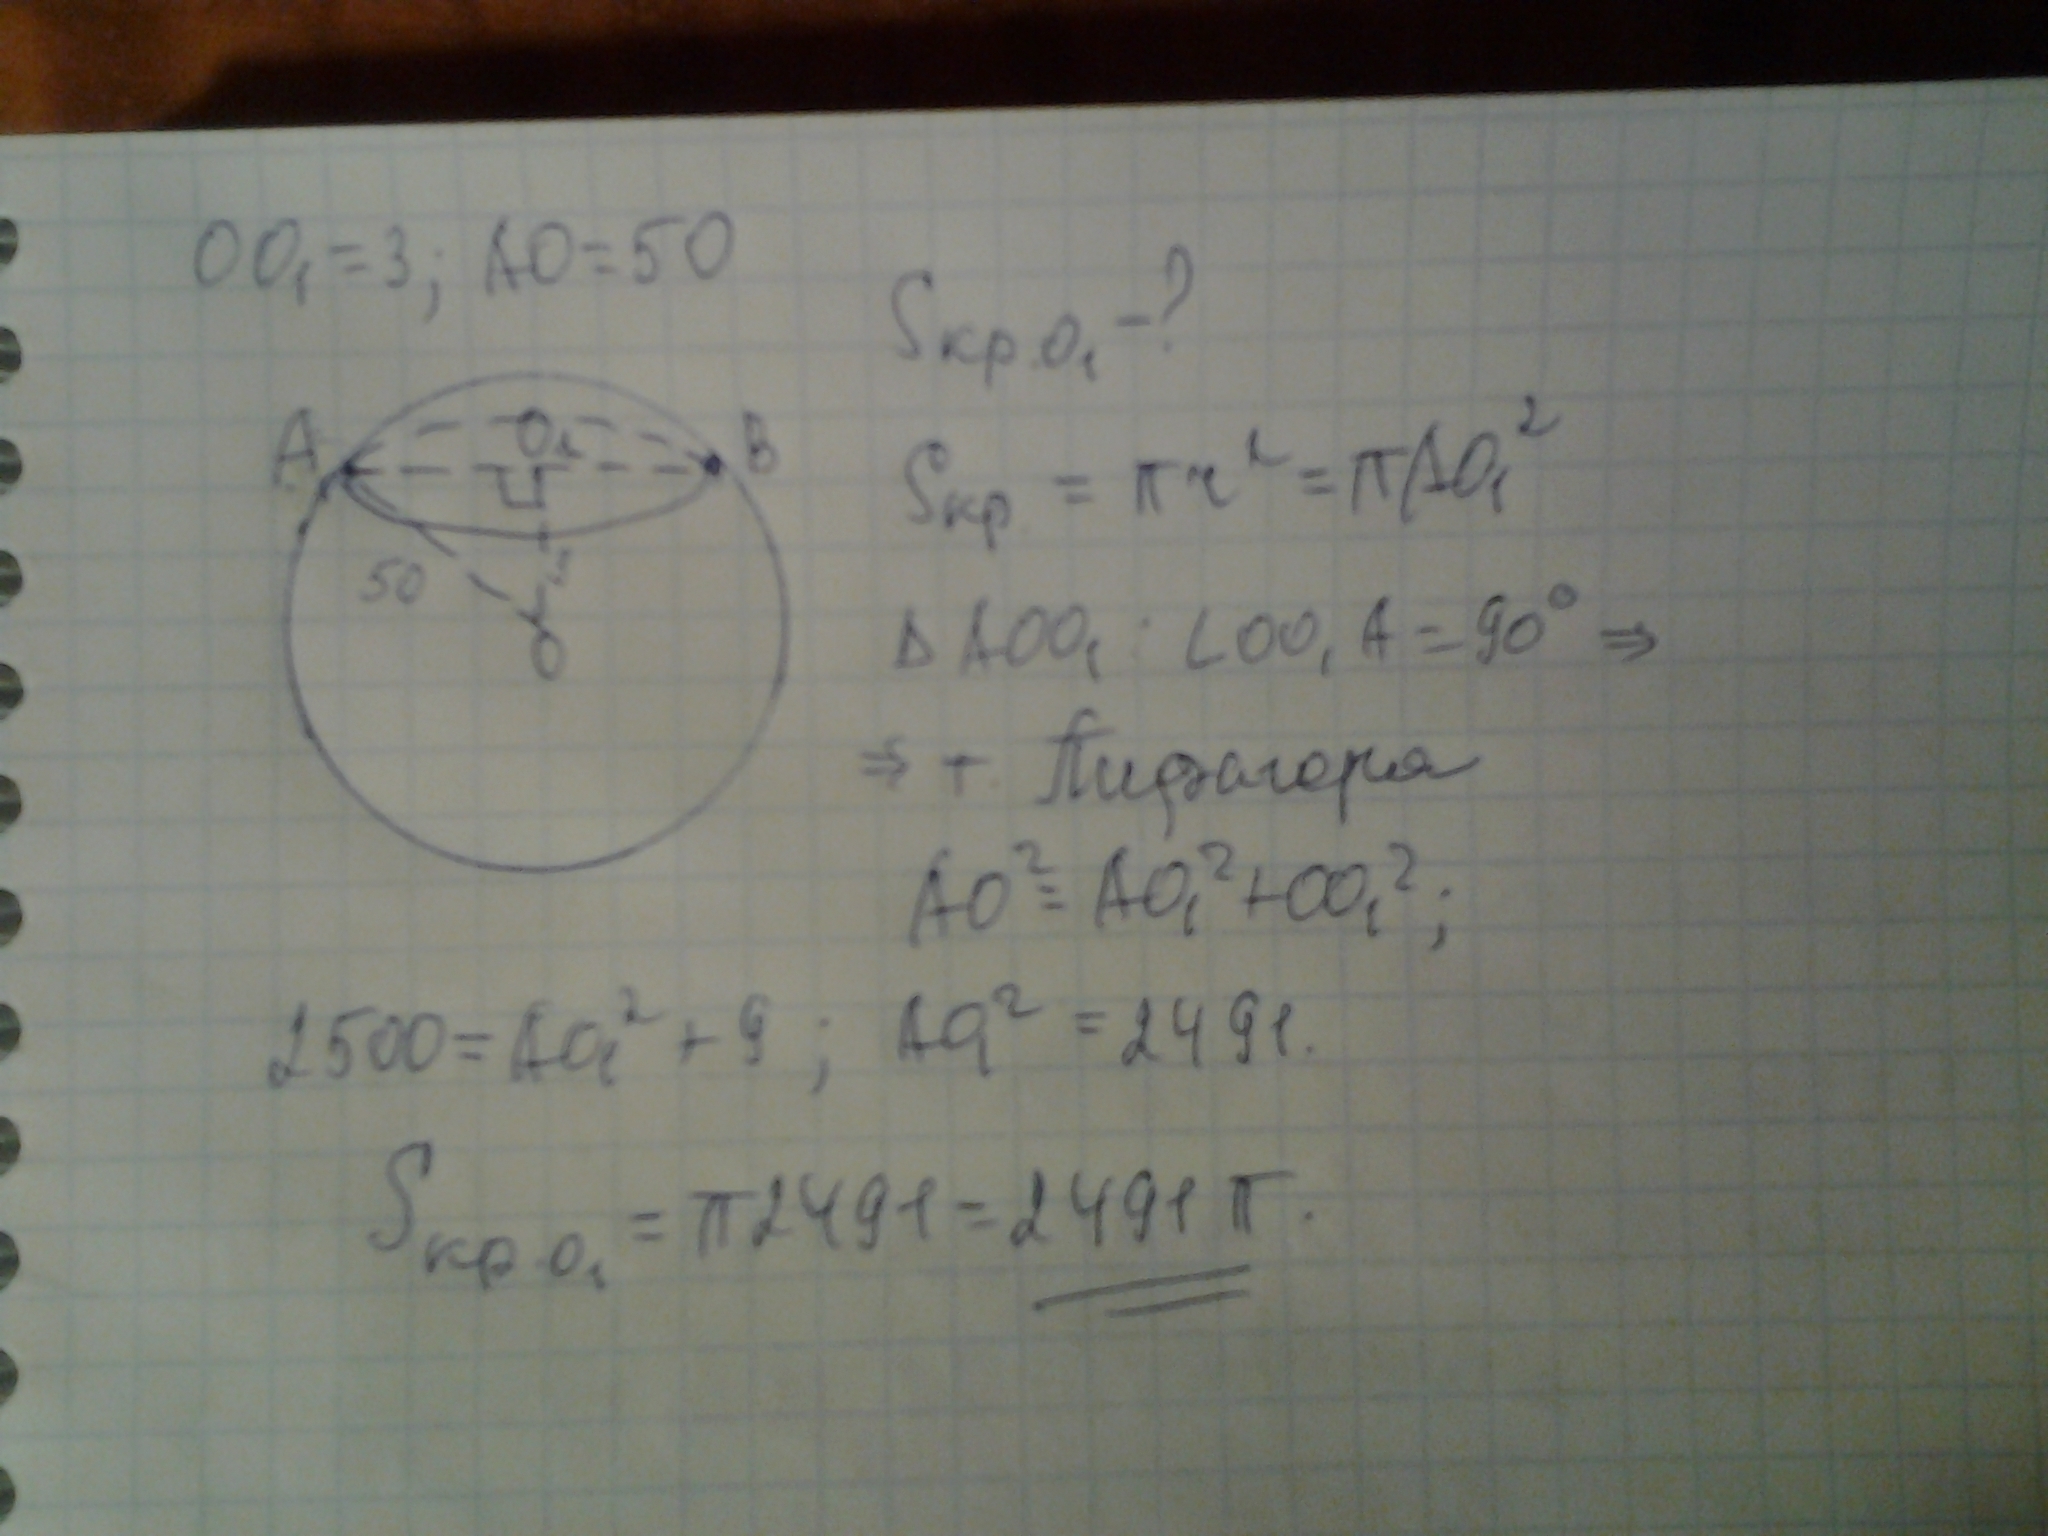 OO₁=3; AO=50
Sкр.O₁-?
A O₁ B
50
O
Sкр = πr² = πAO₁²
Δ AOO₁ : ∠OO₁A = 90° ⇒
⇒ т. Пифагора
AO² = AO₁² + OO₁²;
2500 = AO₁² + 9 ; AO₁² = 2491.
Sкр.O₁ = π2491 = 2491 π.